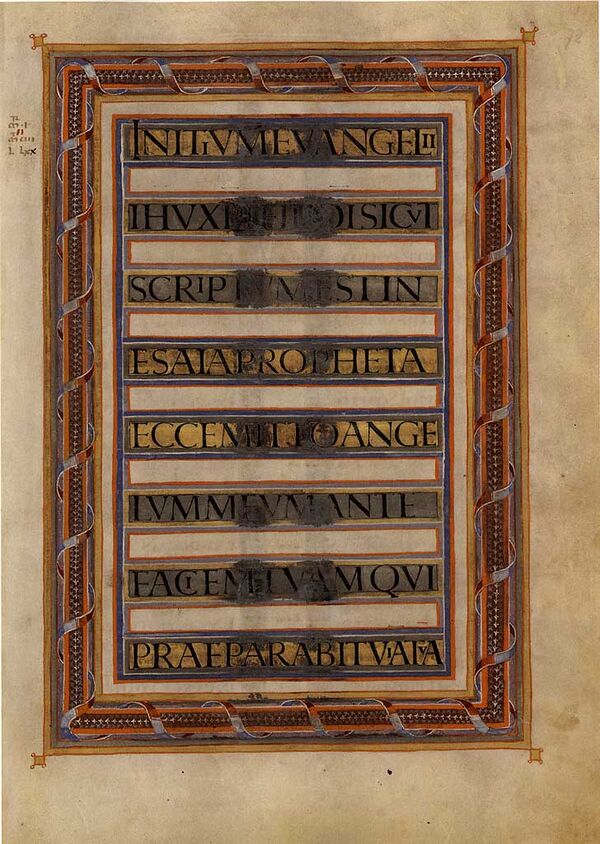 72
L LXX
INITIVM EVANGELII
IHV XPI FILII DI SICVT
SCRIPTVM EST IN
ESAIA PROPHETA
ECCE MITTO ANGE
LVM MEVM ANTE
FACIEM TVAM QVI
PRAEPARABIT VIA TVA